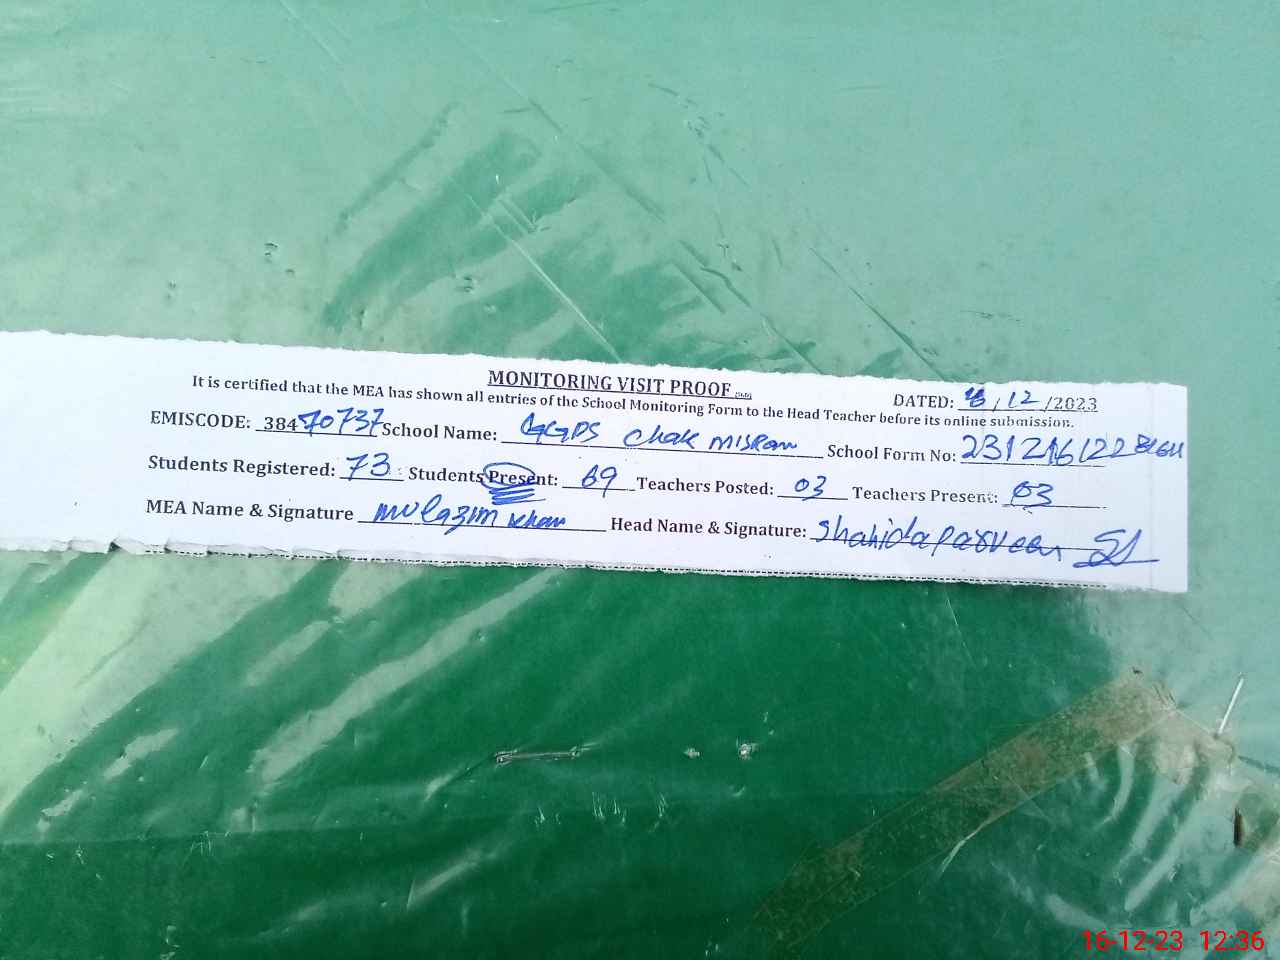 MONITORING VISIT PROOF
DATED: 16/12/2023
It is certified that the MEA has shown all entries of the School Monitoring Form to the Head Teacher before its online submission.
EMISCODE: 38470737 School Name: GGPS Chak Misran School Form No:
Students Registered: 73 Students Present: 69 Teachers Posted: 03 Teachers Present: 03
MEA Name & Signature Mulazim Khan Head Name & Signature: Shahida Parveen
16-12-23 12:36